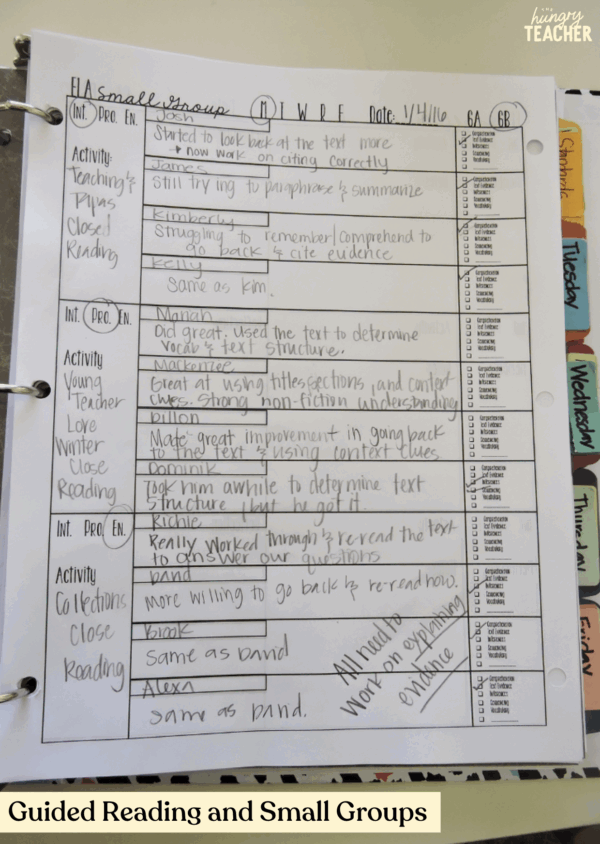 the
hungry
TEACHER
ELA Small Group M T W R F Date: 1/4/16 6A 6B
INT. PRO. EN.
Activity:
Teaching &
Closed
Reading
Josh
Started to look back at the text more
→ now work on citing correctly
James
Still trying to paraphrase & summarize
Kimberly
Struggling to remember/comprehend to
go back & cite evidence
Kelly
Same as Kim.
Comprehension
Text Evidence
Inferences
Summarizing
Vocabulary
INT. PRO. EN.
Activity
Young
Teacher
Love
Winter
Close
Reading
Mariah
Did great. Used the text to determine
vocab & text structure.
Mackenzee
Great at using titles, sections, and context
clues. Strong non-fiction understanding
Dillon
Made great improvement in going back
to the text & using context clues
Dominik
Took him awhile to determine text
structure, but he got it.
INT. PRO. EN.
Activity
Collections
Close
Reading
Richie
Really worked through & re-read the text
to answer our questions
David
More willing to go back & re-read now.
Brook
Same as David
Alexa
same as David.
All need to
work on explaining
evidence
Standards
Tuesday
Wednesday
Thursday
Friday
Guided Reading and Small Groups